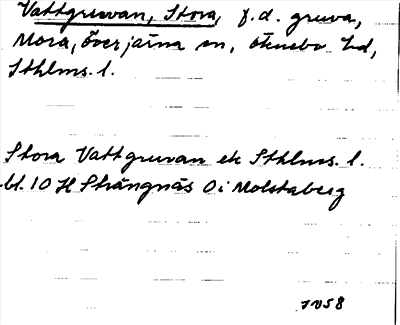 Vattgruvan, Stora, f.d. gruva,
Mora, Överjärna sn, Öknebo hd,
Sthlms. l.
Stora Vattgruvan ek Sthlms. l.
bl. 10 H Strängnäs 0 i Molstaberg
1958